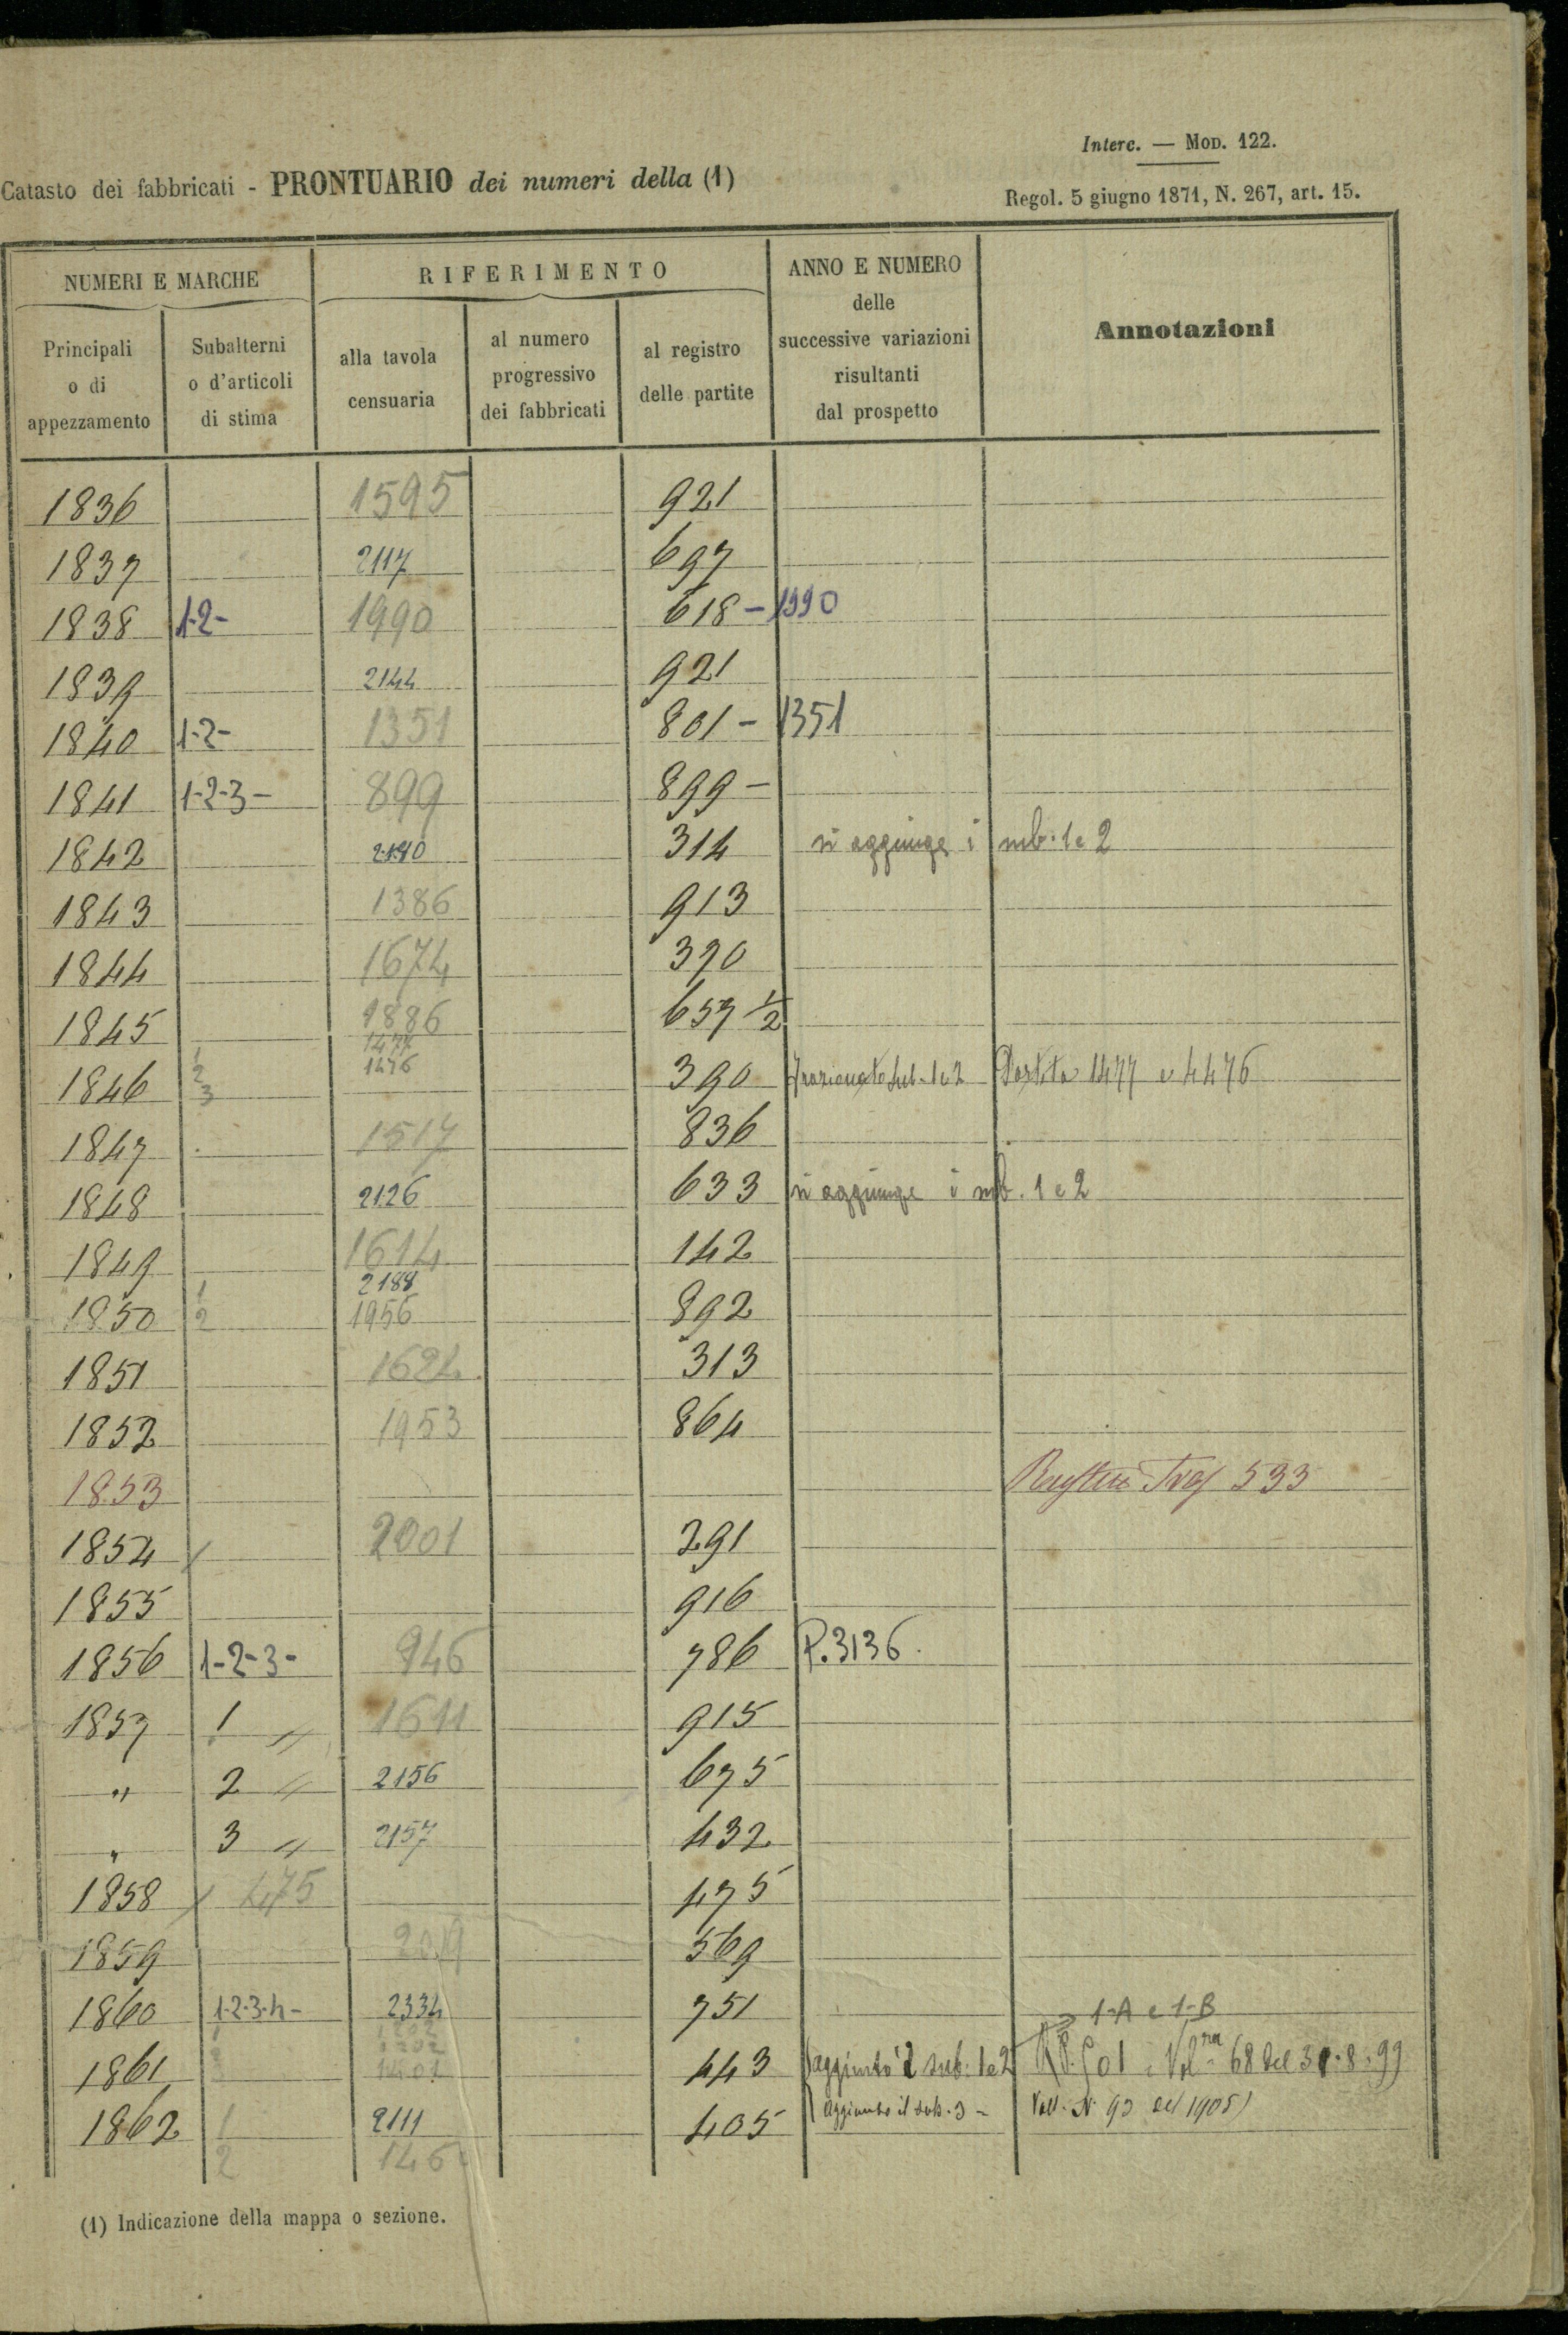 Interc. — Mod. 122.
Catasto dei fabbricati - PRONTUARIO dei numeri della (1)
Regol. 5 giugno 1871, N. 267, art. 15.
NUMERI E MARCHE
RIFERIMENTO
ANNO E NUMERO
delle
successive variazioni
risultanti
dal prospetto
Annotazioni
Principali
o di
appezzamento
Subalterni
o d'articoli
di stima
alla tavola
censuaria
al numero
progressivo
dei fabbricati
al registro
delle partite
1836 1595 921
1837 2117 697
1838 1-2- 1990 618 - 1990
1839 2144 921
1840 1-2- 1351 801 - 1351
1841 1-2-3- 899 899 -
1842 2190 314 si aggiunge i sub. 1 e 2
1843 1386 913
1844 1674 390
1845 1886 657 1/2
1477
1846 1 2 3 1476 390 frazionato sub. 1 e 2 Partita 1477 e 4476
1847 1517 836
1848 2126 633 si aggiunge i sub. 1 e 2
1849 1614 142
1 2188
1850 2 1956 892
1851 1624 313
1852 1953 864
1853 533
1854 2001 291
1855 916
1856 1-2-3- 946 786 P. 3136.
1857 1 " 1611 915
" 2 " 2156 675
" 3 " 2157 432
1858 475 475
1859 2019 569
1860 1-2-3-4- 2334 751
1-A e 1-B
1861 1401 443 aggiunto i sub. 1 e 2 68 del 31.8.99
1862 1 2111 405 aggiunto il sub. 3 - Volt. N. 93 del 1905)
2 146
(1) Indicazione della mappa o sezione.